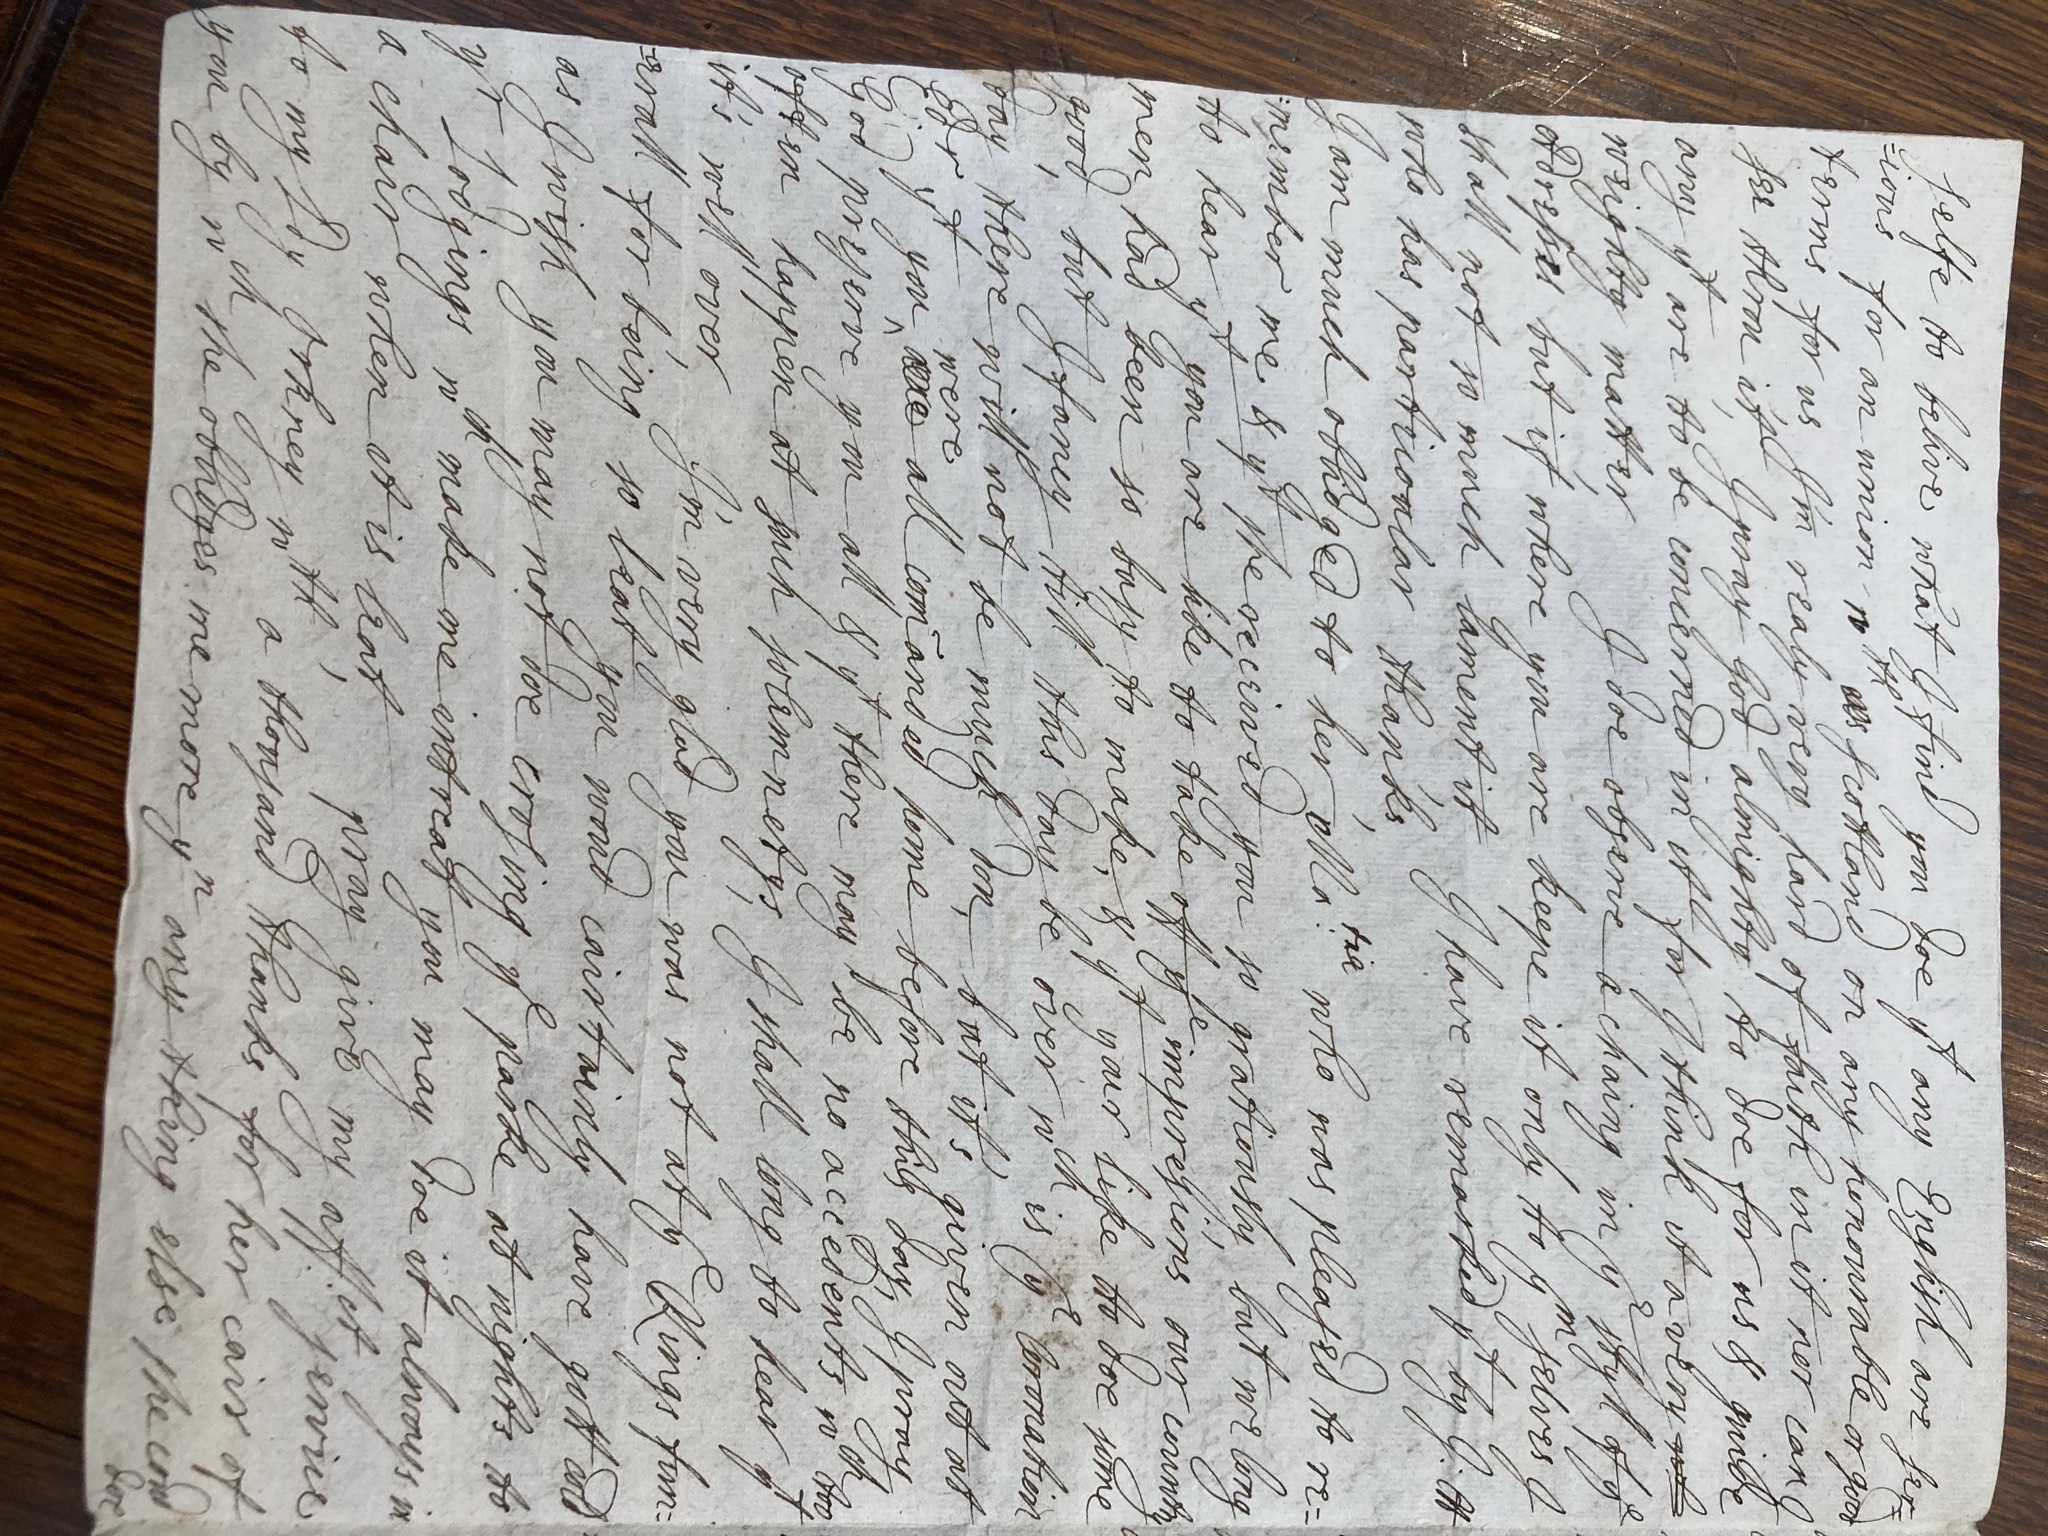 selfe to belive what I find you doe yt any English are ser=
=ious for an union wth Scottland on any honourable or good
terms for us, I'm realy very hard of faith in it nor can I
see throu it, I pray God almighty to doe for us & guide
any yt are to be concerned in it for I think it a very
weighty matter, I doe observe a chaing in ye styll of ye
Adresses but if where you are keepe it only to ym selves I
shall not so much lament it, I have remarked yt by J: H
who has particoular thanks,
I am much oblidged to her Ma:tie who was pleased to re=
=member me & yt she received you so gratiously, but we long
to hear yt you are like to take off ye impresions our country
men had been so busy to make, & yt your like to doe some
good, but I fancy till this day be over wch is ye Coronation
day there will not be much don, but it's given out at
Edr yt you were all comanded home before this day, I pray
God preserve you all & yt there may be no accedents wch too
often happen at such solemnetys, I shall long to hear yt
it's well over, I'm very glad you was not at ye Kings fun=
=erall for being so leat you woud cairtainly have gott cold
as I wish you may not doe crosing ye parke at nights to
yr Lodgings wch make me intreat you may doe it always in
a chair when it is leat, pray give my aff:ct service
to my Ldy Orkney wth a thousand thanks for her cair of
you by wch she oblidges me more yn any thing else she coud
doe